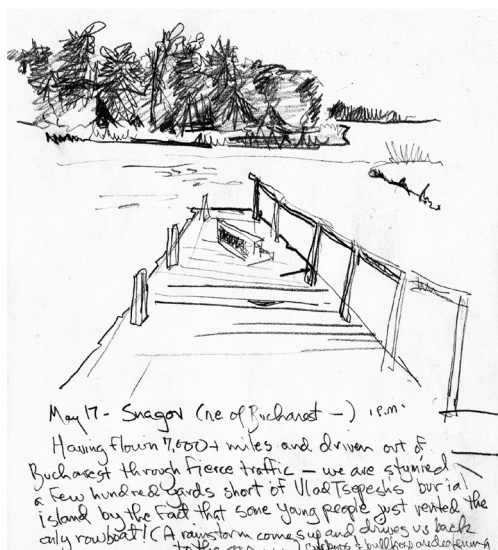 May 17 - Snagov (ne of Bucharest —) 1 P.M.
Having flown 7,000+ miles and driven out of
Bucharest through fierce traffic — we are stymied
a few hundred yards short of Vlad Tsepesh's burial
island by the fact that some young people just rented the
only rowboat! (A rainstorm comes up and drives us back
to the